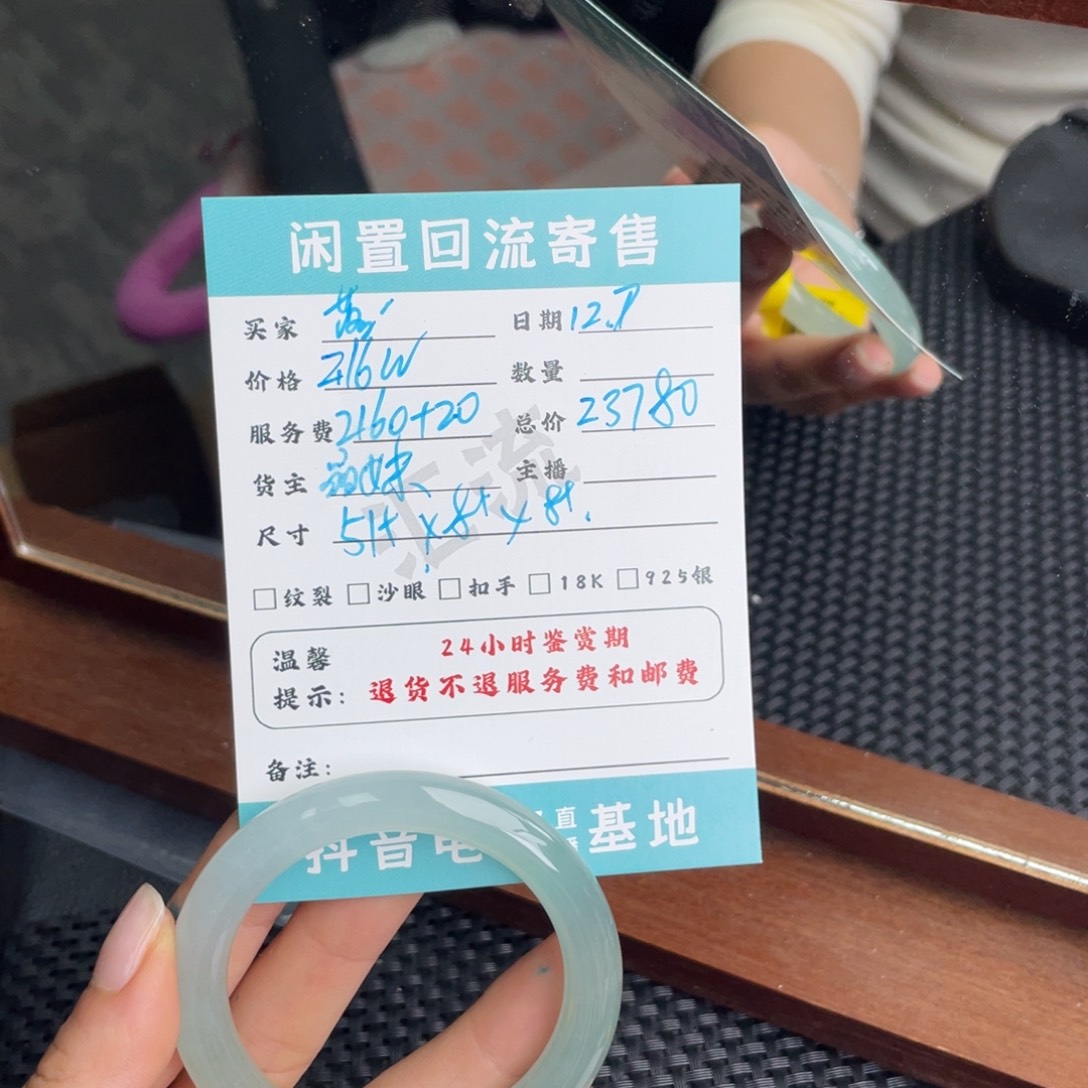 闲置回流寄售
买家 黄 日期 12.7
价格 2.16W 数量
服务费 2160+20 总价 23780
货主 主播
尺寸 51+ × 8+ × 8+.
汇流
□纹裂 □沙眼 □扣手 □18K □925银
温馨提示: 24小时鉴赏期
退货不退服务费和邮费
备注:
抖音电 直 基地